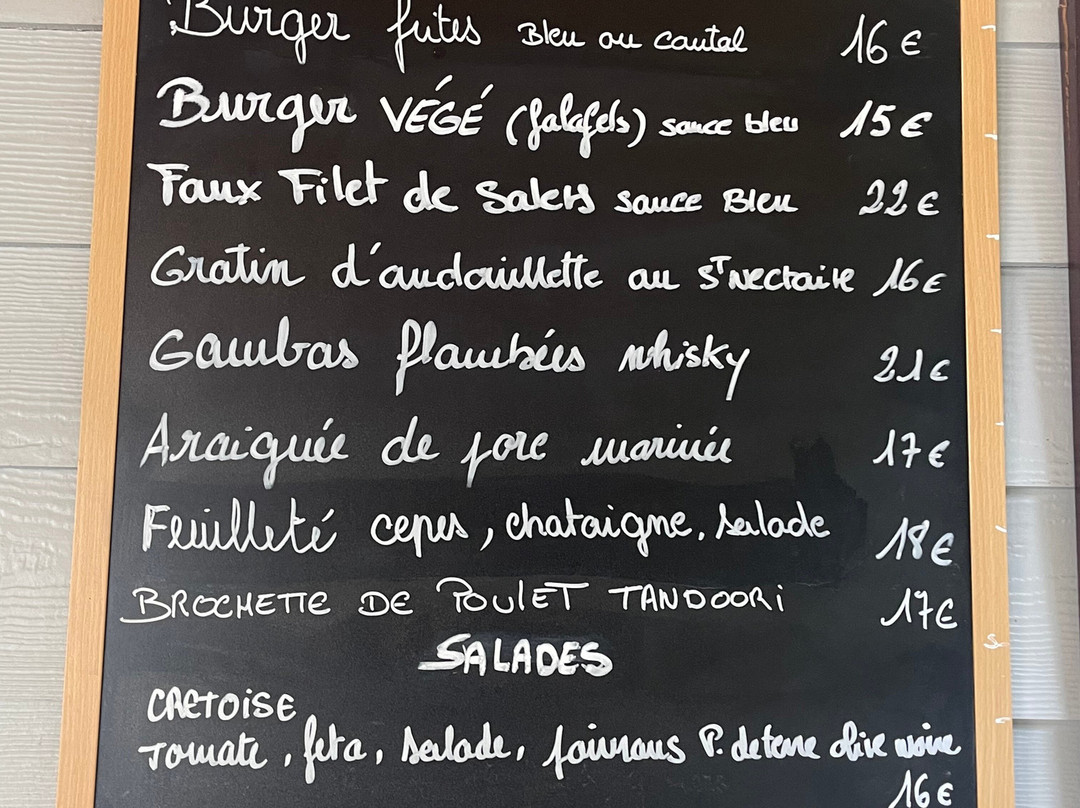 Burger frites Bleu ou cantal 16 €
Burger VÉGÉ (falafels) sauce bleu 15 €
Faux Filet de Salers sauce Bleu 22 €
Gratin d'andouillette au St Nectaire 16 €
Gambas flambées whisky 21 €
Araignée de porc marinée 17 €
Feuilleté cepes, chataigne, salade 18 €
BROCHETTE DE POULET TANDOORI 17 €
SALADES
CRETOISE
Tomate, feta, salade, poivrons P. de terre olive noire
16 €